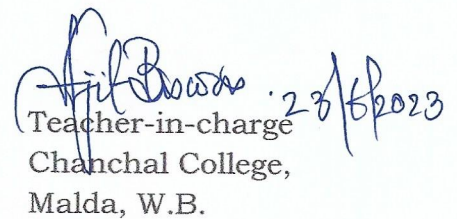 Ajit Biswas . 23/6/2023
Teacher-in-charge
Chanchal College,
Malda, W.B.